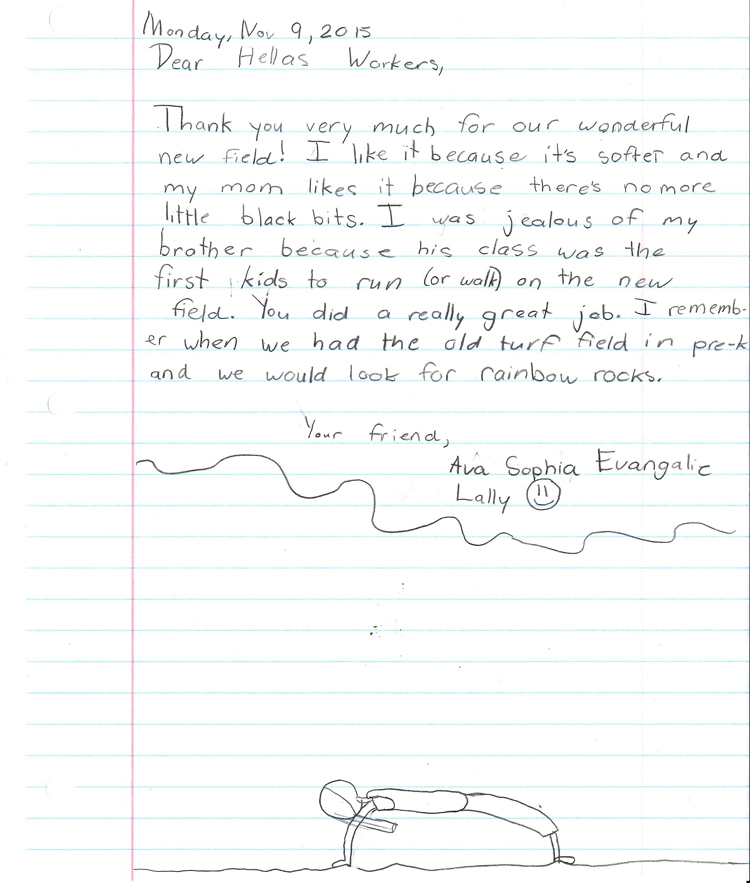 Monday, Nov 9, 2015
Dear Hellas Workers,
Thank you very much for our wonderful
new field! I like it because it's softer and
my mom likes it because there's no more
little black bits. I was jealous of my
brother because his class was the
first kids to run (or walk) on the new
field. You did a really great job. I rememb-
er when we had the old turf field in pre-k
and we would look for rainbow rocks.
Your friend,
Ava Sophia Evangalic
Lally